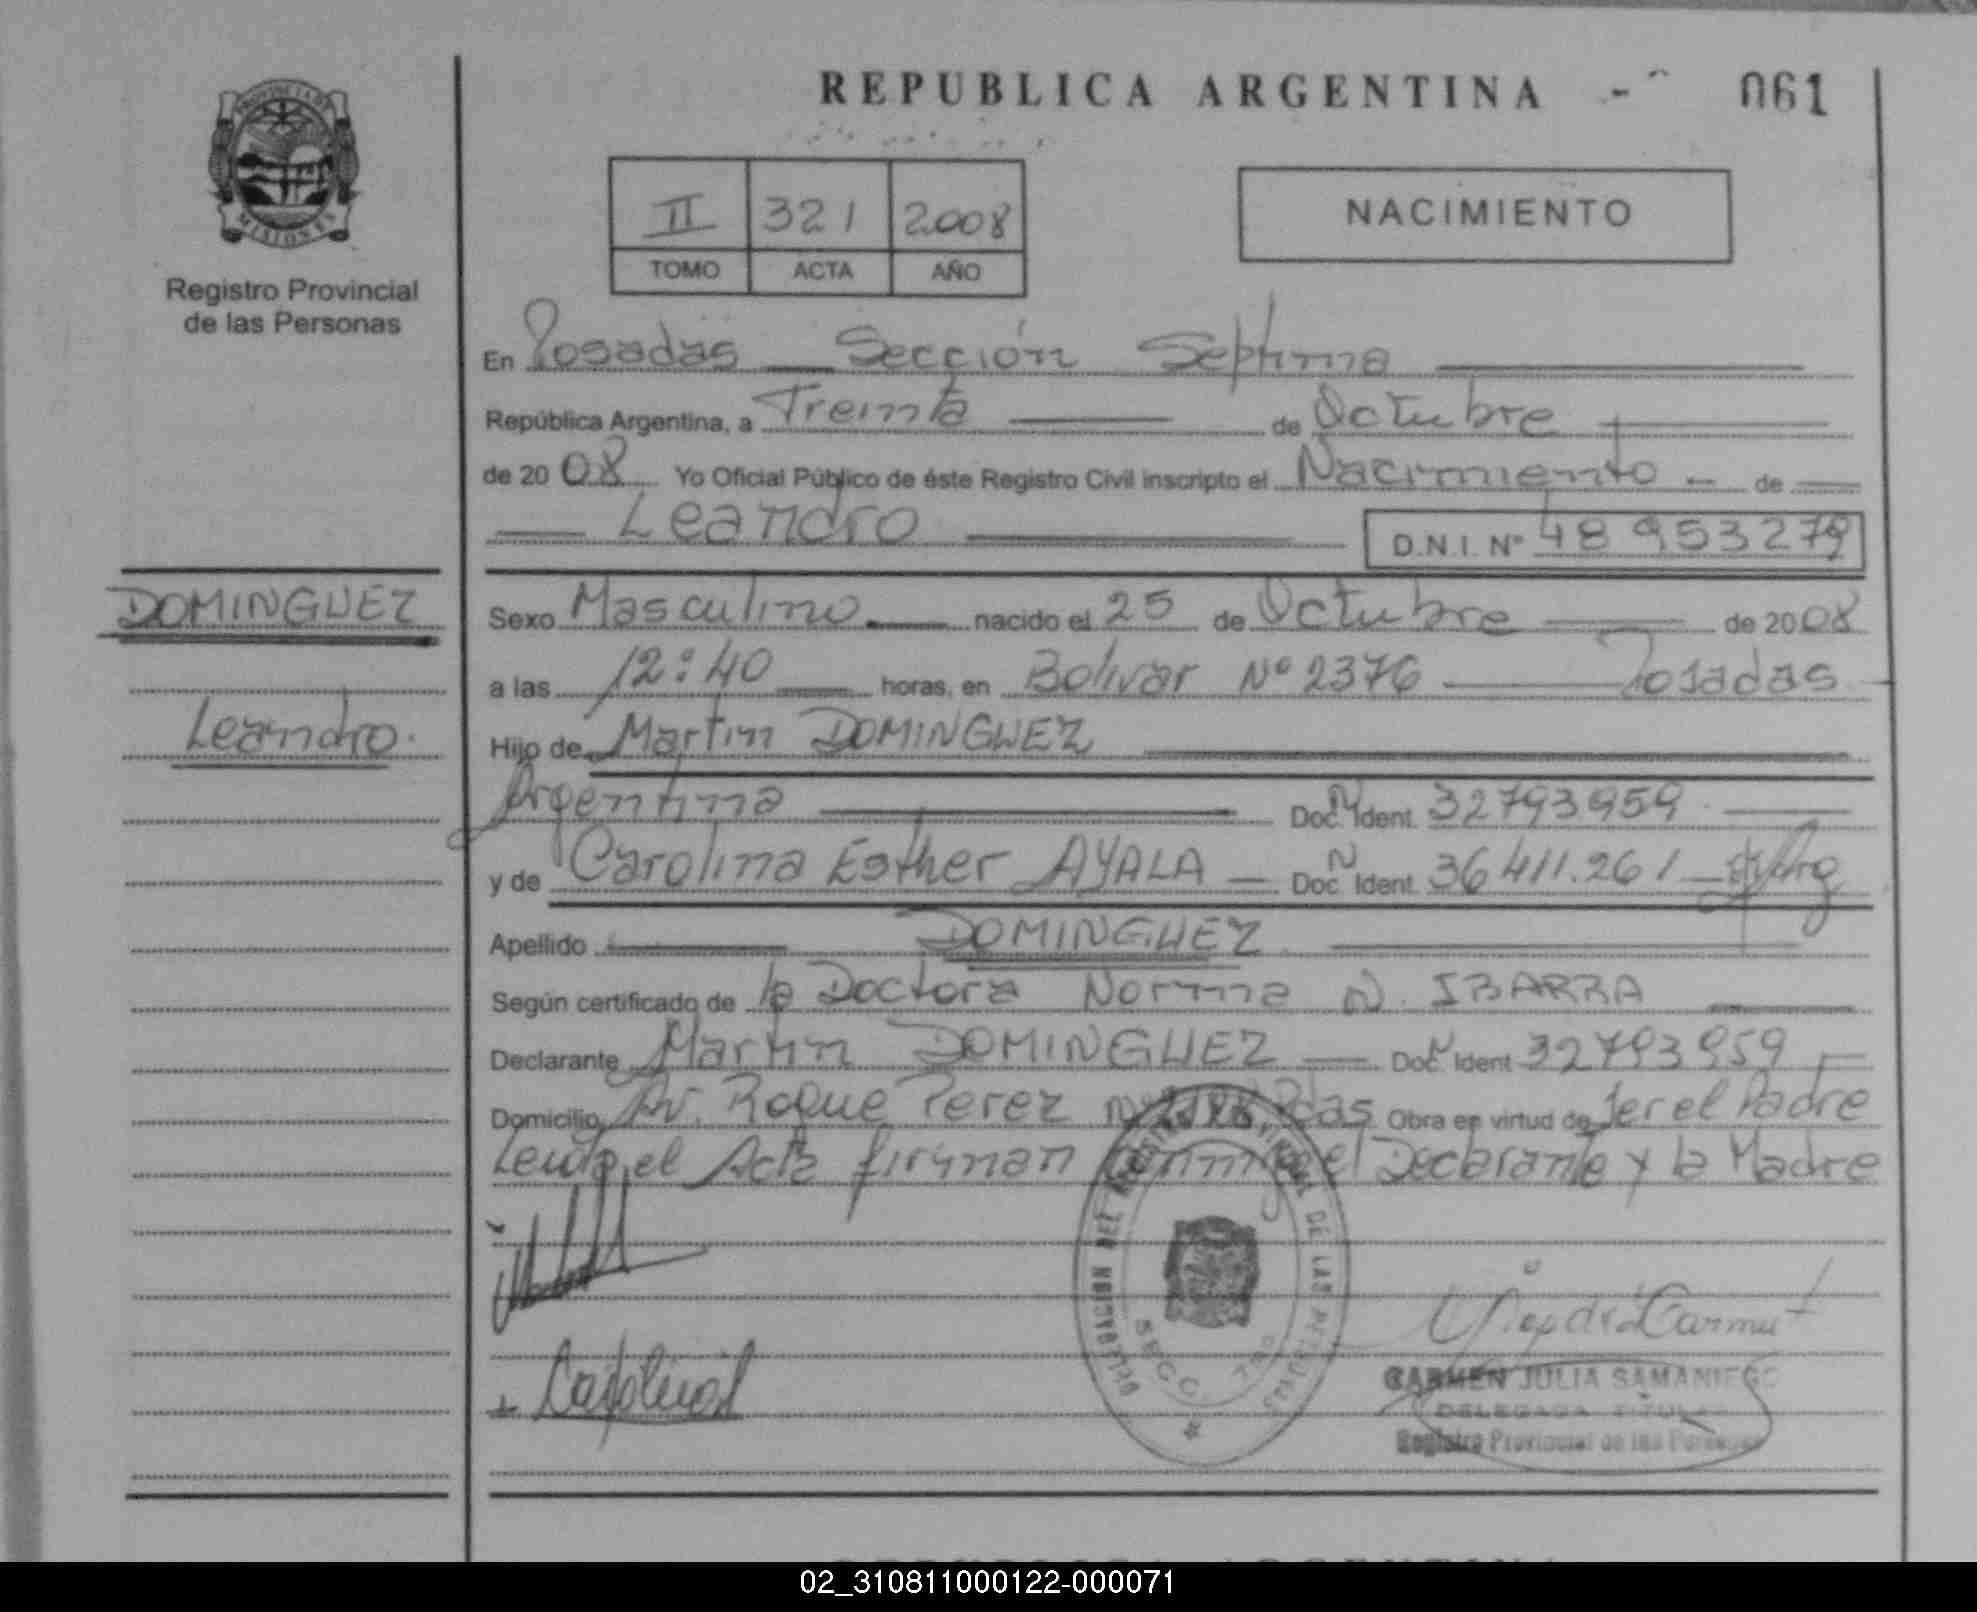 REPUBLICA ARGENTINA
061
PROVINCIA DE
MISIONES
Registro Provincial
de las Personas
II 321 2008
TOMO ACTA AÑO
NACIMIENTO
En Posadas Sección Septima
República Argentina, a Treinta de Octubre
de 2008 Yo Oficial Público de éste Registro Civil inscripto el Nacimiento de
Leandro D.N.I. Nº 48 953279
DOMINGUEZ
Leandro.
Sexo Masculino nacido el 25 de Octubre de 2008
a las 12:40 horas, en Bolivar Nº 2376 Posadas
Hijo de Martin DOMINGUEZ
Argentina Doc. Ident. 32793959
y de Carolina Esther AYALA Doc. Ident. 36411.261 Arg
Apellido DOMINGUEZ
Según certificado de la Doctora Norma N. IBARRA
Declarante Martin DOMINGUEZ Doc. Ident. 32793959
Domicilio Av. Roque Perez Nº Pdas Obra en virtud de ser el Padre
Leida el Acta firman conmigo el Declarante y la Madre
DELEGACION DEL REGISTRO PROVINCIAL DE LAS PERSONAS
SECC. 7ma
Carolina
CARMEN JULIA SAMANIEGO
DELEGADA TITULAR
Registro Provincial de las Personas
02_310811000122-000071